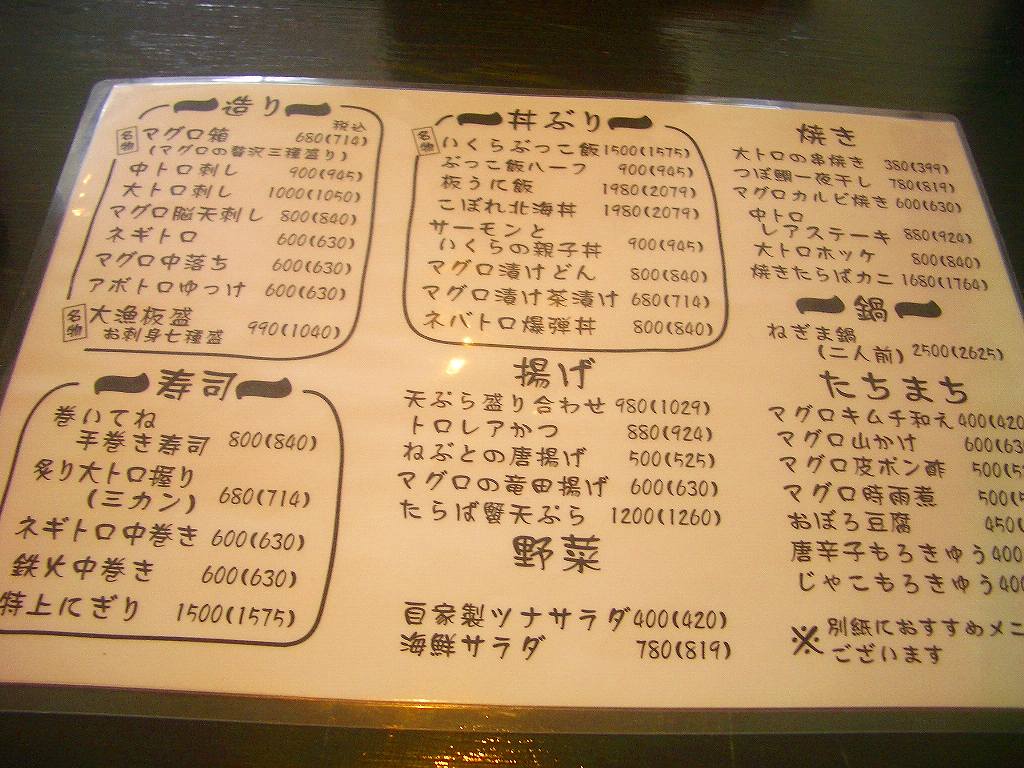 造り
税込
名物 マグロ箱 680(714)
(マグロの贅沢三種盛り)
中トロ刺し 900(945)
大トロ刺し 1000(1050)
マグロ脳天刺し 800(840)
ネギトロ 600(630)
マグロ中落ち 600(630)
アボトロゆっけ 600(630)
名物 大漁板盛 990(1040)
お刺身七種盛
寿司
巻いてね
手巻き寿司 800(840)
炙り大トロ握り
(三カン) 680(714)
ネギトロ中巻き 600(630)
鉄火中巻き 600(630)
特上にぎり 1500(1575)
丼ぶり
名物 いくらぶっこ飯 1500(1575)
ぶっこ飯ハーフ 900(945)
板うに飯 1980(2079)
こぼれ北海丼 1980(2079)
サーモンと
いくらの親子丼 900(945)
マグロ漬けどん 800(840)
マグロ漬け茶漬け 680(714)
ネバトロ爆弾丼 800(840)
揚げ
天ぷら盛り合わせ 980(1029)
トロレアかつ 880(924)
ねぶとの唐揚げ 500(525)
マグロの竜田揚げ 600(630)
たらば蟹天ぷら 1200(1260)
野菜
自家製ツナサラダ 400(420)
海鮮サラダ 780(819)
焼き
大トロの串焼き 380(399)
つぼ鯛一夜干し 780(819)
マグロカルビ焼き 600(630)
中トロ
レアステーキ 880(924)
大トロホッケ 800(840)
焼きたらばカニ 1680(1764)
鍋
ねぎま鍋
(二人前) 2500(2625)
たちまち
マグロキムチ和え 400(420
マグロ山かけ 600(63
マグロ皮ポン酢 500(5
マグロ時雨煮 500(
おぼろ豆腐 450(
唐辛子もろきゅう 400
じゃこもろきゅう 400
※ 別紙におすすめメニ
ございます